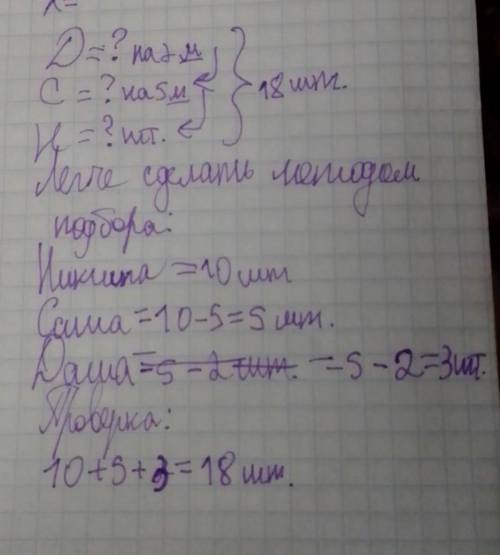 Д = ? на 2 м
С = ? на 5 м } 18 шт.
Н = ? шт.
Легче сделать методом
подбора:
Никита = 10 шт
Саша = 10 - 5 = 5 шт.
Даша = 5 - 2 шт. = 5 - 2 = 3 шт.
Проверка:
10 + 5 + 3 = 18 шт.